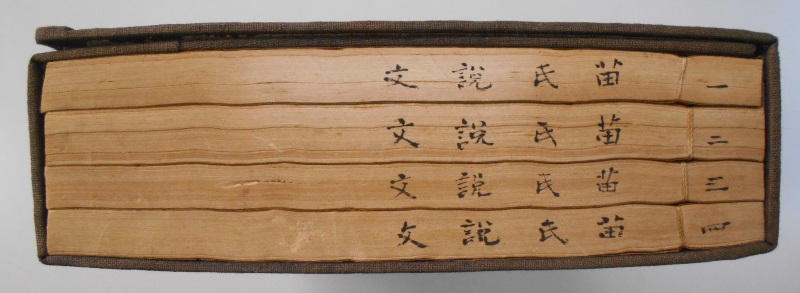 苗氏說文 一
苗氏說文 二
苗氏說文 三
苗氏說文 四